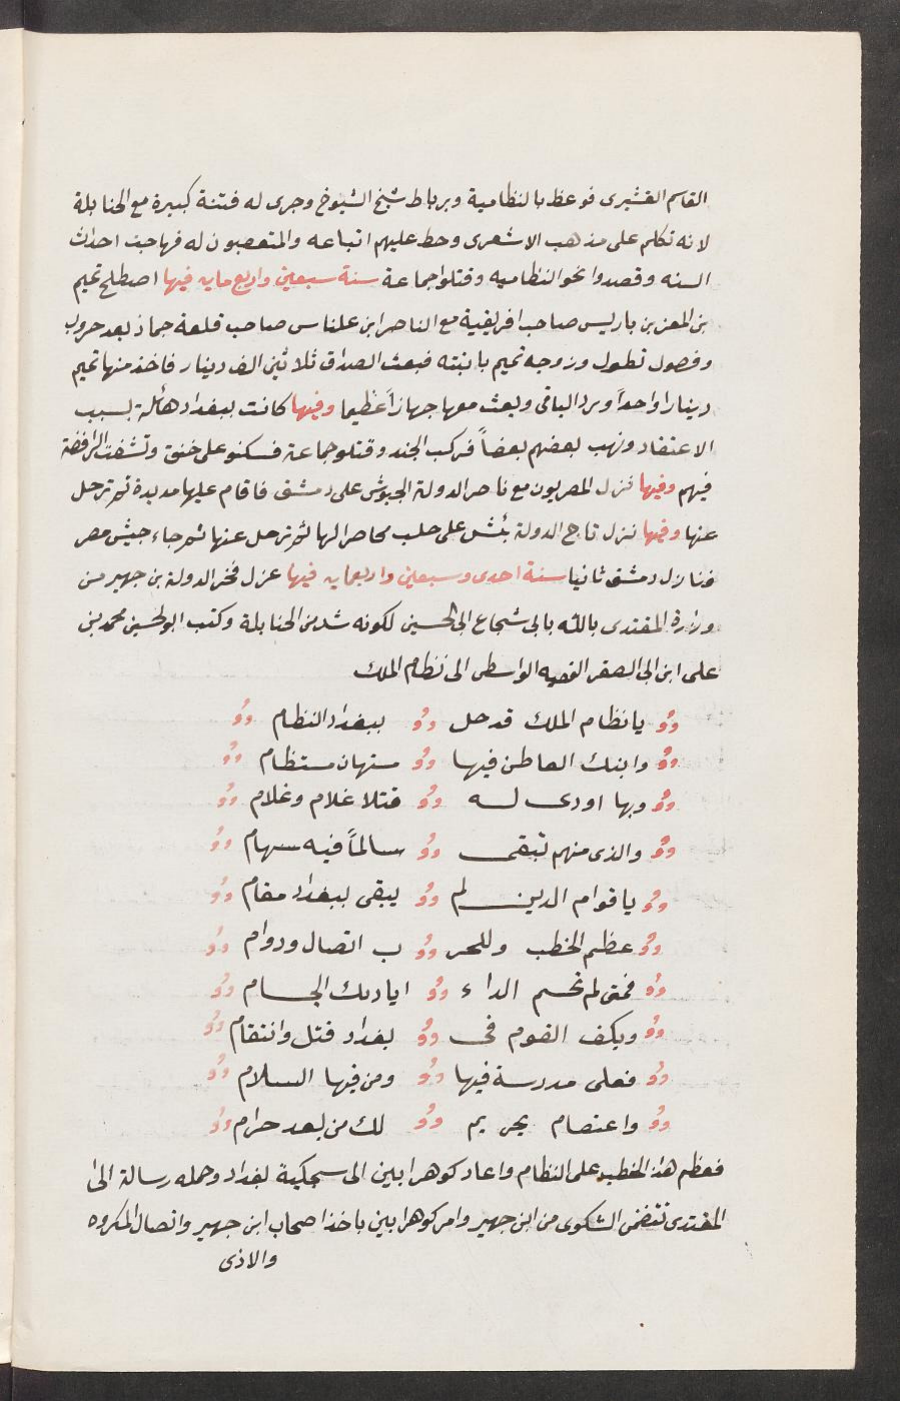 القاسم القشيرى فوعظ بالنظامية وبرباط شيخ الشيوخ وجرى له فتنة كبيرة مع الحنابلة
لانه تكلم على مذهب الاشعرى وحط عليهم اتباعه والمتعصبون له فهاجت احداث
السنه وقصدوا نحو النظاميه وقتلوا جماعة سنة سبعين واربع مايه فيها اصطلح تميم
بن المعز بن باديس صاحب افريقية مع الناصر ابن علناس صاحب قلعة حماد بعد حروب
وفصول تطول وزوجه تميم بابنته فبعث الصداق ثلاثين الف دينار فاخذ منها تميم
دينارا واحداً ورد الباقى وبعث معها جهازاً عظيما وفيها كانت ببغداد هائلة بسبب
الاعتقاد ونهب بعضهم بعضاً فركب الجند وقتلو جماعة فسكنو على حنق وتشفت الرافضة
فيهم وفيها نزل المصريون مع ناصر الدولة الجيوش على دمشق فاقام عليها مديدة ثم ترحل
عنها وفيها نزل تاج الدولة تتش على حلب محاصرا لها ثم ترحل عنها ثم جاء جيش مصر
فنازل دمشق ثانيا سنة احدى وسبعين واربعمايه فيها عزل فخر الدولة بن جهير من
وزارة المقتدى بالله بابى شجاع الحسين لكونه شد من الحنابلة وكتب ابو الحسين محمد بن
على ابن ابى الصقر الفقيه الواسطى الى نظام الملك
يا نظام الملك قد حل ببغداد النظام
وابنك القاطن فيها مستهان مستظام
وبها اودى له قتلا غلام وغلام
والذى منهم تبقى سالماً فيه سهام
يا قوام الدين لم يبقى ببغداد مقام
عظم الخطب وللحر ب اتصال ودوام
فمتى لم تحسم الداء اياديك الجسام
ويكف القوم فى بغداد قتل وانتقام
فعلى مدرسة فيها ومن فيها السلام
واعتصام بحريم لك من بعد حرام
فعظم هذا الخطب على النظام واعاد كوهرابين الى سحكية بغداد وحمله رسالة الى
المقتدى تتضمن الشكوى من ابن جهير وامر كوهرابين باخذ اصحاب ابن جهير واتصال المكروه
والاذى